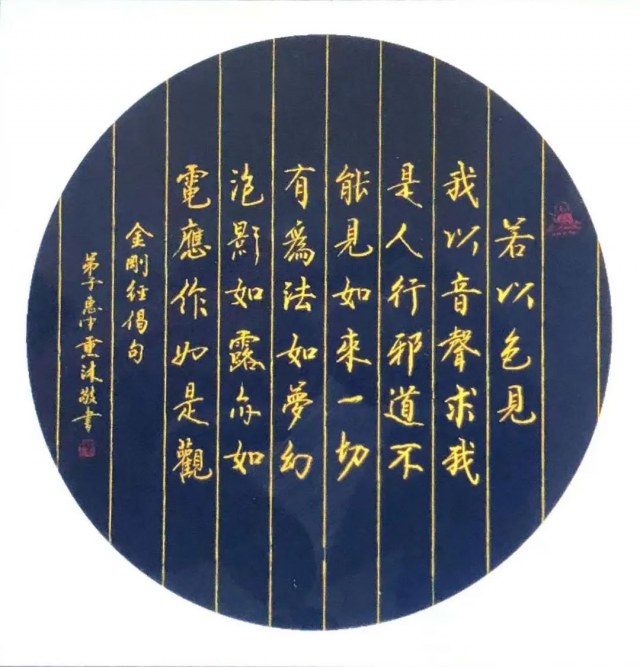 若以色見
我以音聲求我
是人行邪道不
能見如來一切
有為法如夢幻
泡影如露亦如
電應作如是觀
金剛經偈句
弟子惠中熏沐敬書